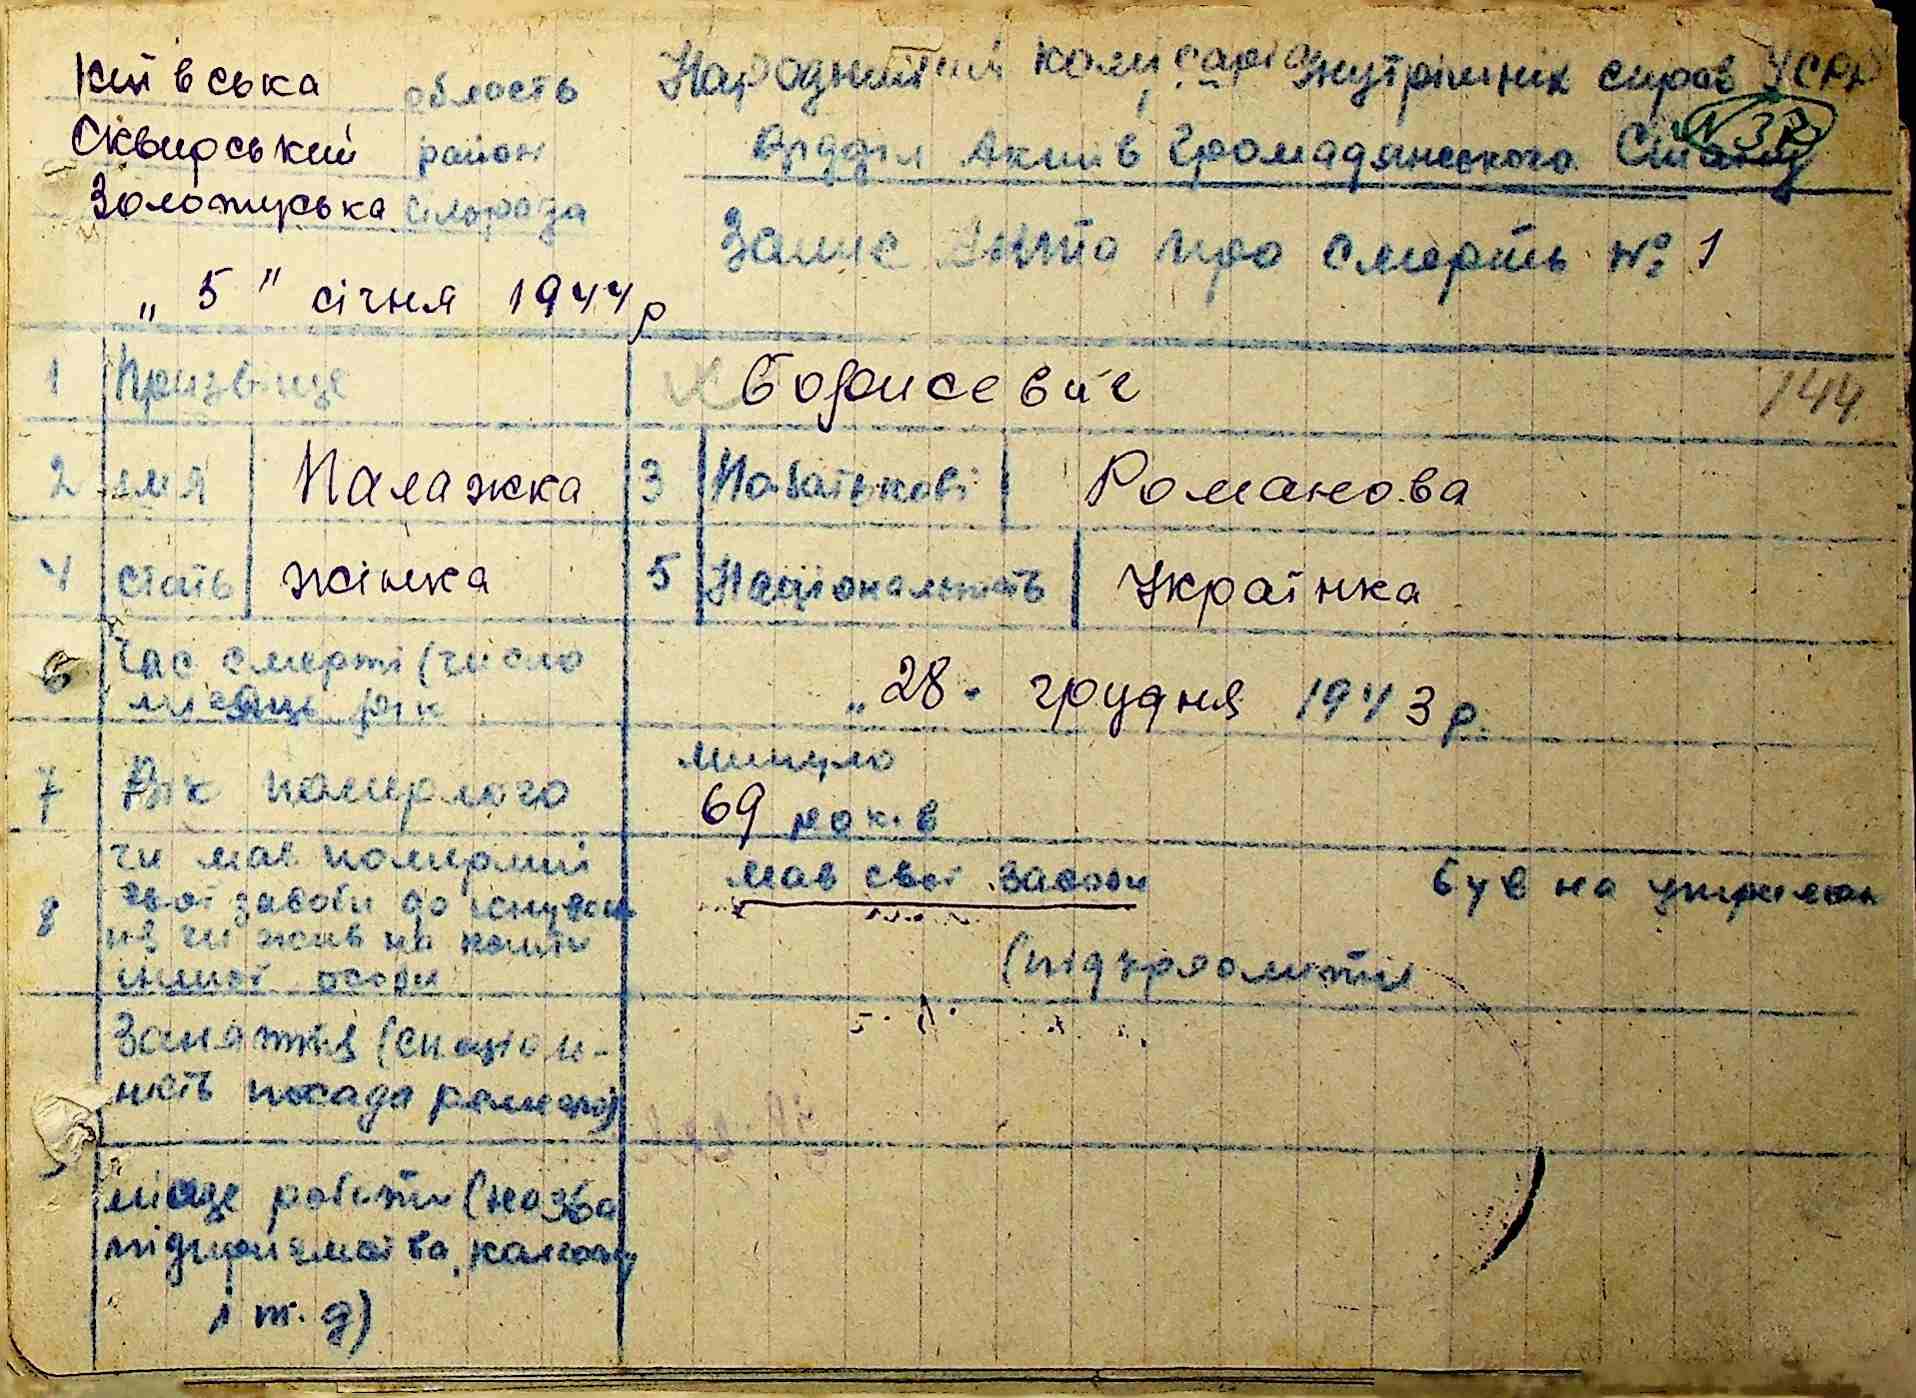 Київська область
Сквирський район
Золотуська сільрада
„ 5 " січня 1944 р
Народний комісаріа Внутрішніх справ УСРР
Відділ Актів Громадянського Стану
N 37
Запис Акта про смерть № 1
1 Призвіще Борисевич 144
2 імя Палажка 3 По батькові Романова
4 стать жінка 5 Національність Українка
6 Час смерті (число місяць рік „28" грудня 1943 р.
7 Вік померлого минуло 69 років
8 чи мав померлий
свої засоби до існуван
ня чи жив на кошти
іншої особи
мав свої засоби був на утриман
(підкреслити
Заняття (спеціаль-
ність посада ремесло)
місце роботи (назва
підприємства, колгоспу
і т. д)